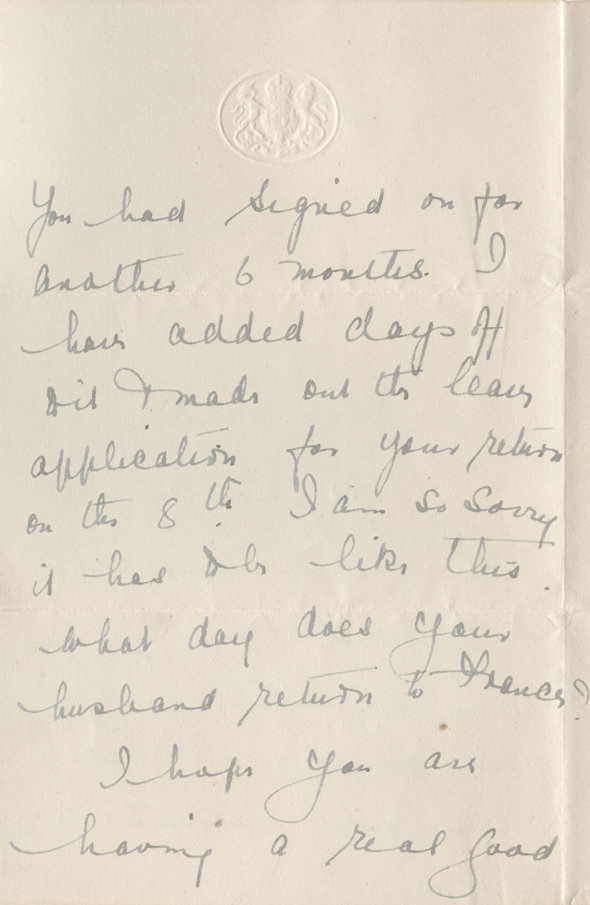 You had signed on for
another 6 months. I
have added days off
to it & made out the leave
application for your return
on the 8th I am so sorry
it has to be like this.
What day does your
husband return to France?
I hope you are
having a real good